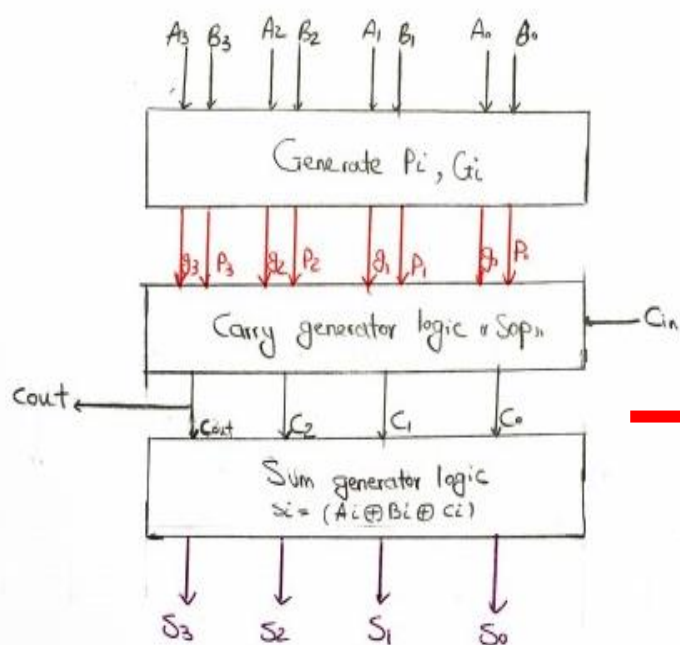 A₃ B₃ A₂ B₂ A₁ B₁ A₀ B₀
Generate Pi, Gi
g₃ P₃ g₂ P₂ g₁ P₁ g₀ P₀
Carry generator logic «Sop»
Cin
Cout
Cout C₂ C₁ C₀
Sum generator logic
Si = (Ai ⊕ Bi ⊕ Ci)
S₃ S₂ S₁ S₀